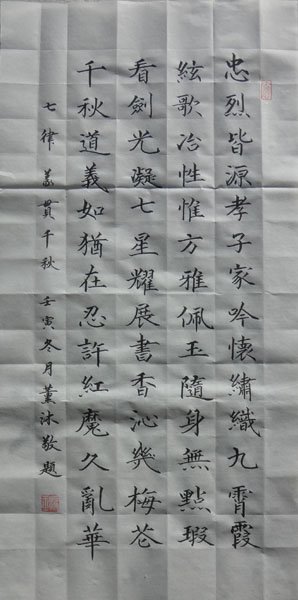 忠烈皆源孝子家吟懷繡織九霄霞
絃歌冶性惟方雅佩玉隨身無點瑕
看劍光凝七星耀展書香沁幾梅花
千秋道義如猶在忍許紅魔久亂華
七律 萬貫千秋 壬寅冬月薰沐敬題